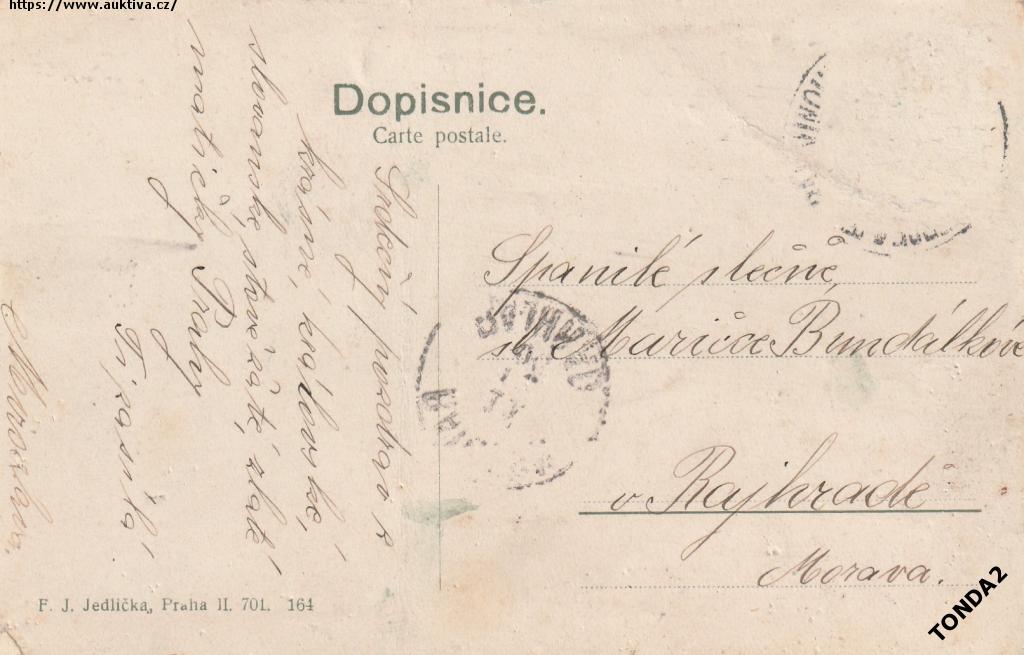 https://www.auktiva.cz/
Dopisnice.
Carte postale.
Srdečný pozdrav z
krásné, královské,
slovanské, stověžaté, zlaté
matičky Prahy
Miroslav.
Spanilé slečně,
sl. Mařičce Bundálkové
v Rajhradě
Morava.
F. J. Jedlička, Praha II. 701. 164
TONDA2